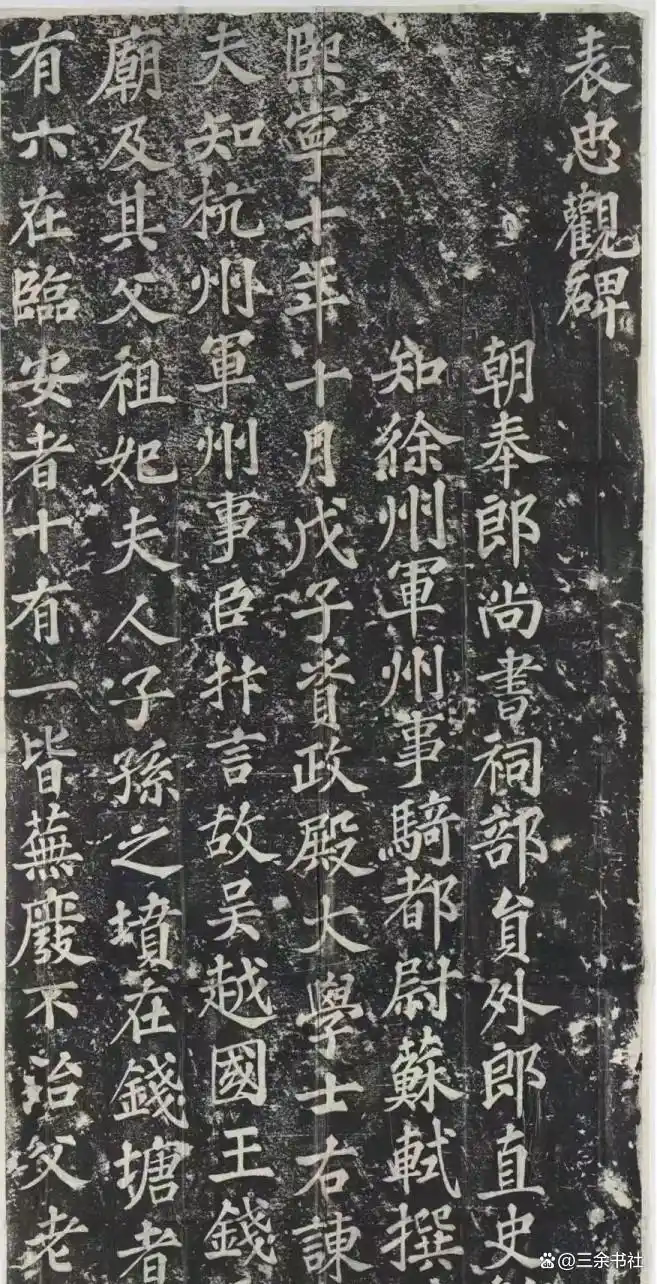 表忠觀碑
朝奉郎尚書祠部員外郎直史
知徐州軍州事騎都尉蘇軾撰
熙寧十年十月戊子資政殿大學士右諫
夫知杭州軍州事臣抃言故吳越國王錢
廟及其父祖妃夫人子孫之墳在錢塘者
有六在臨安者十有一皆蕪廢不治父老
@三余书社